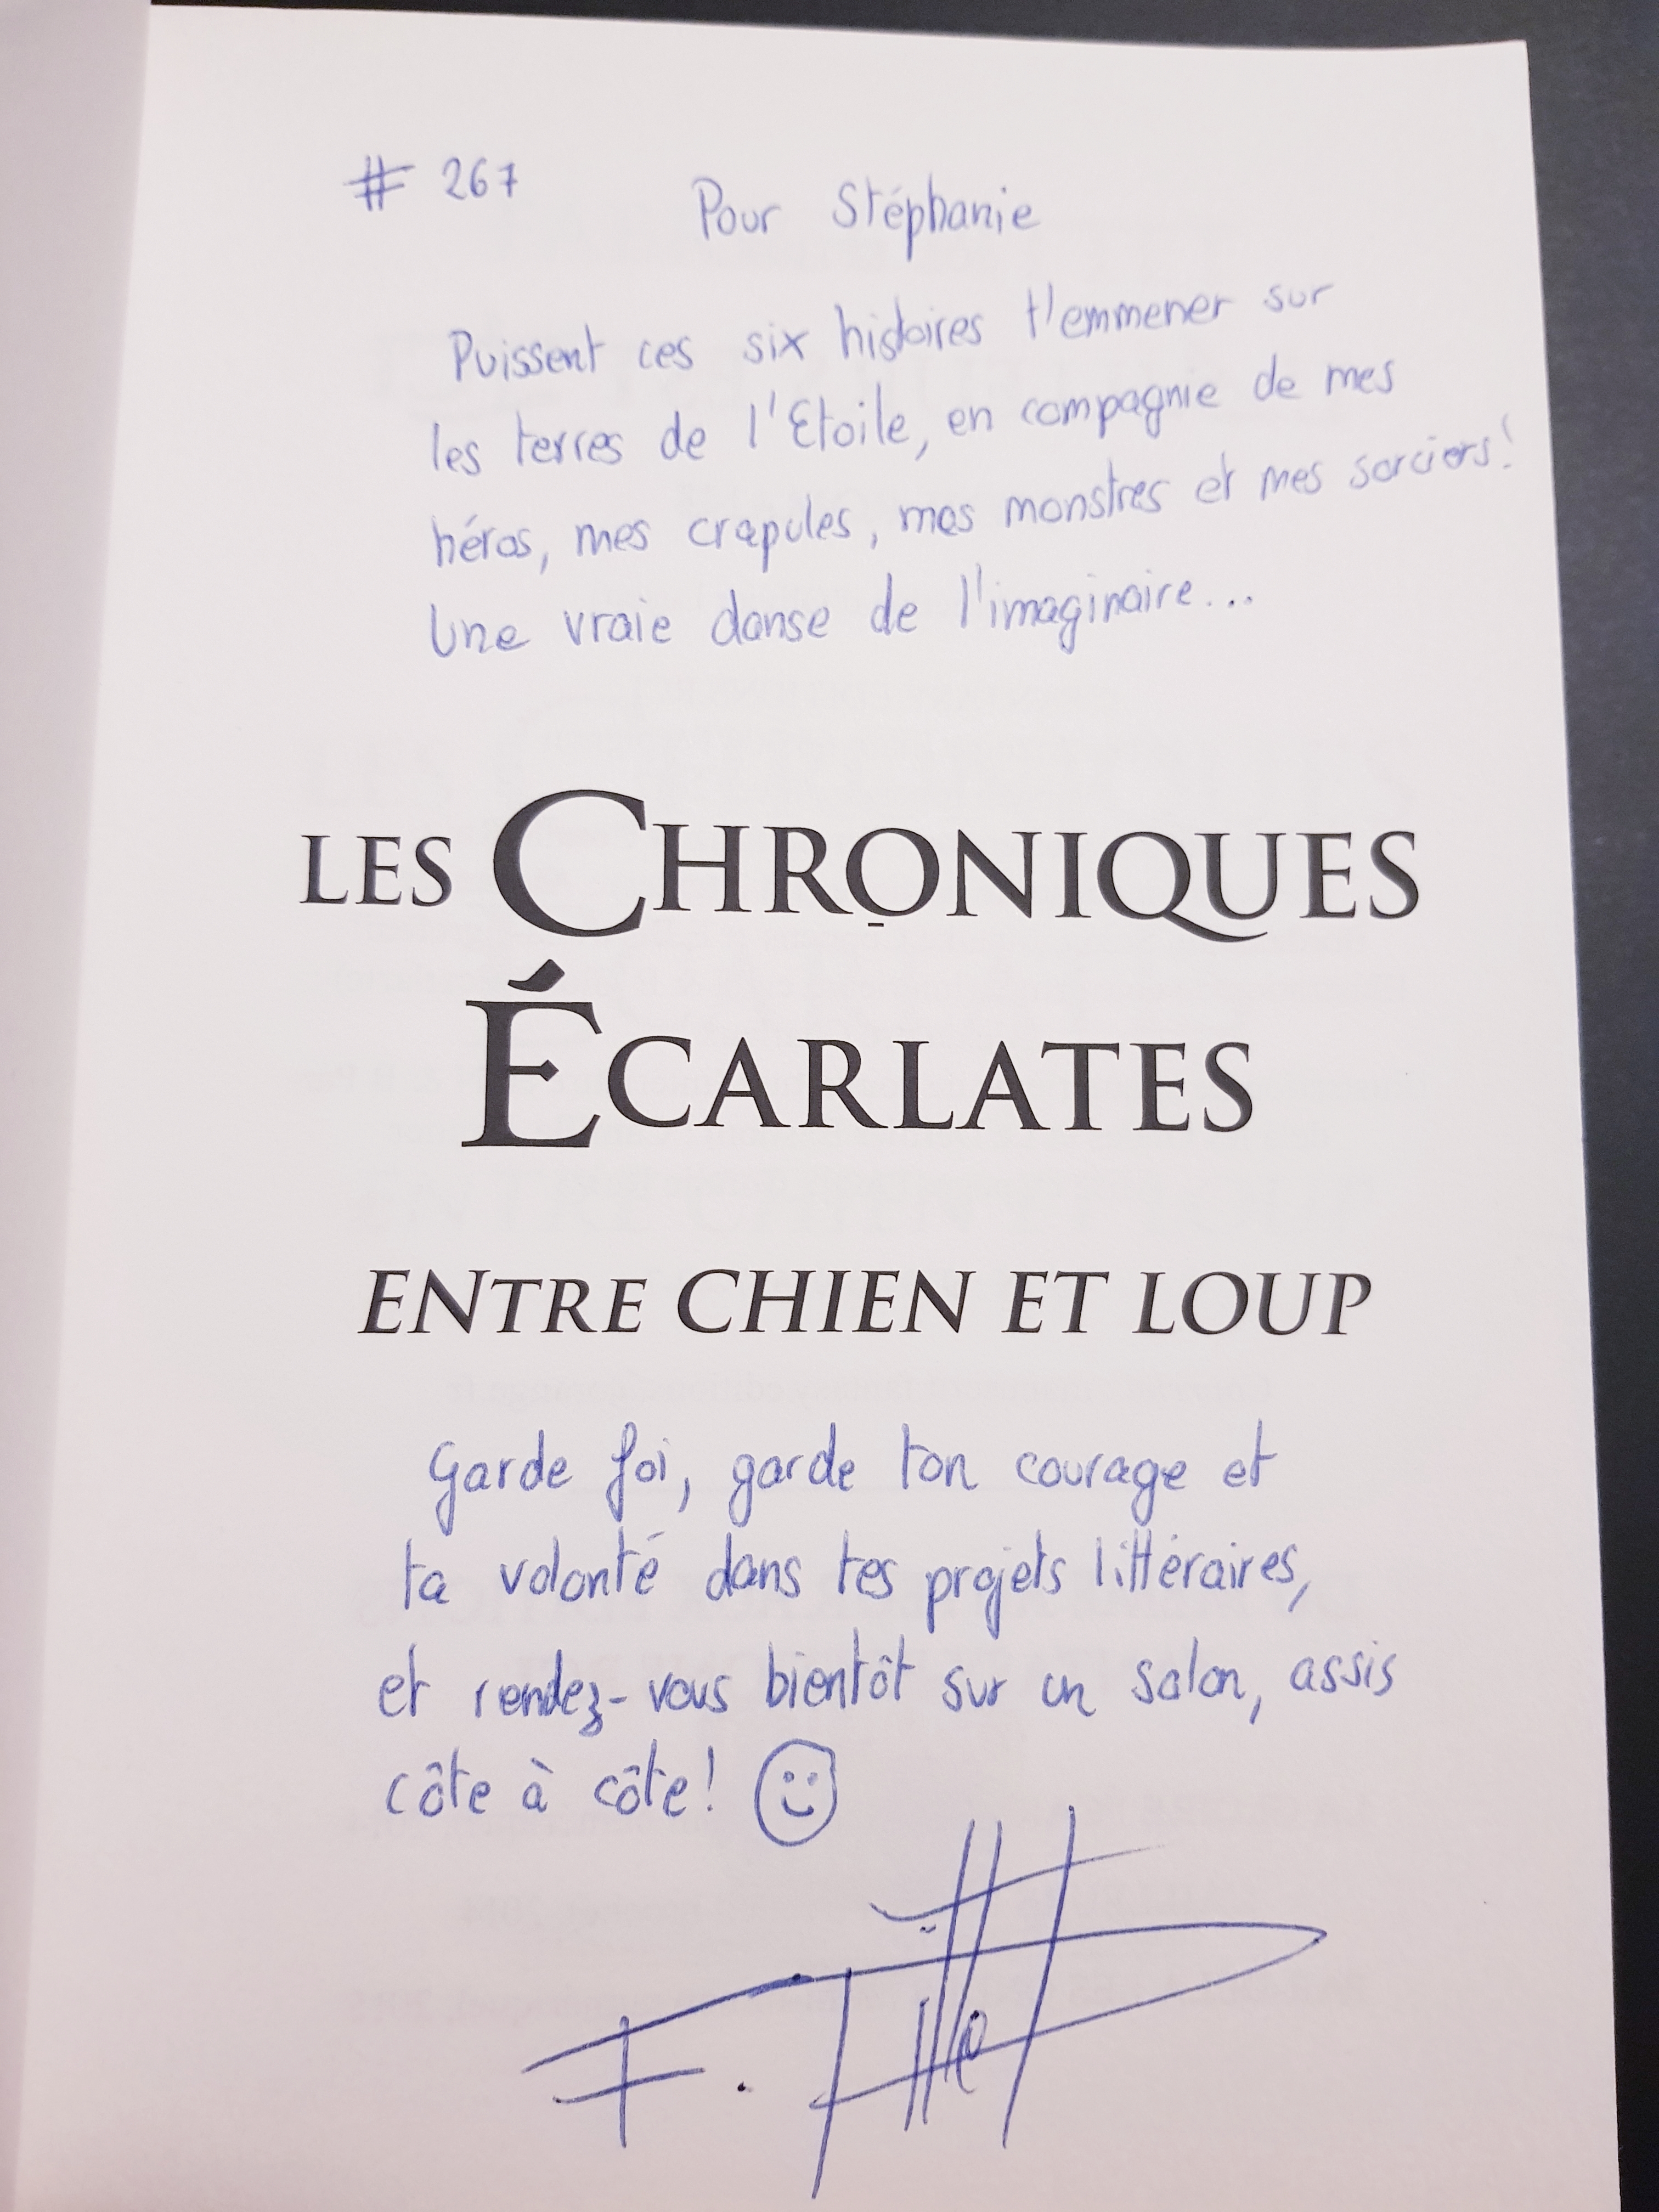 # 267
Pour Stéphanie
Puissent ces six histoires t'emmener sur
les terres de l'Etoile, en compagnie de mes
héros, mes crapules, mes monstres et mes sorciers!
Une vraie danse de l'imaginaire...
LES CHRONIQUES
ÉCARLATES
ENTRE CHIEN ET LOUP
Garde foi, garde ton courage et
ta volonté dans tes projets littéraires,
et rendez-vous bientôt sur un salon, assis
côte à côte!
F.